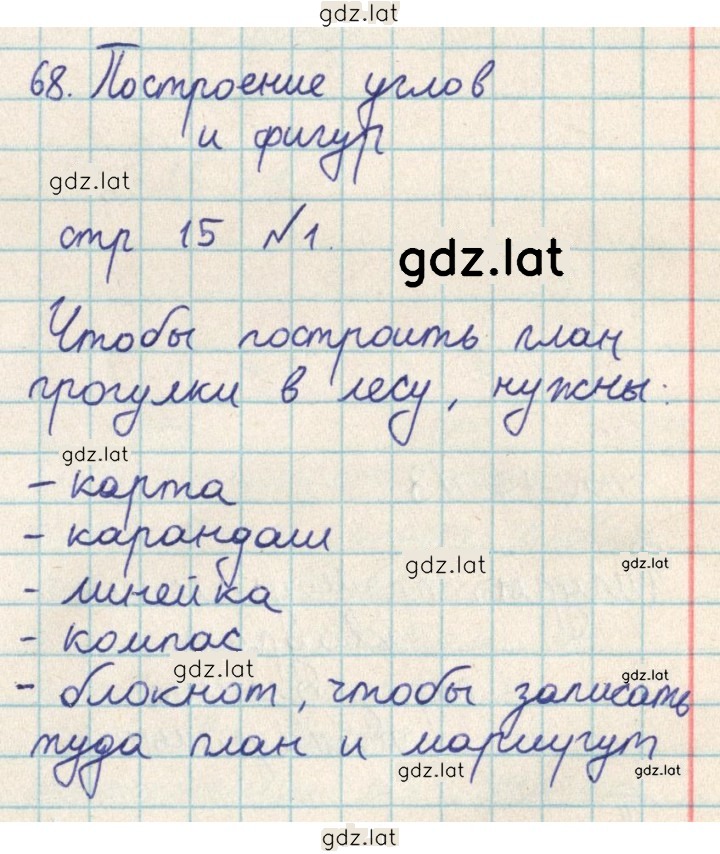 gdz.lat
68. Построение углов
и фигур
gdz.lat
стр 15 №1.
gdz.lat
Чтобы построить план
прогулки в лесу, нужны:
gdz.lat
- карта
- карандаш
gdz.lat
gdz.lat
- линейка
- компас
gdz.lat
gdz.lat
- блокнот, чтобы записать
туда план и маршугут
gdz.lat
gdz.lat
gdz.lat